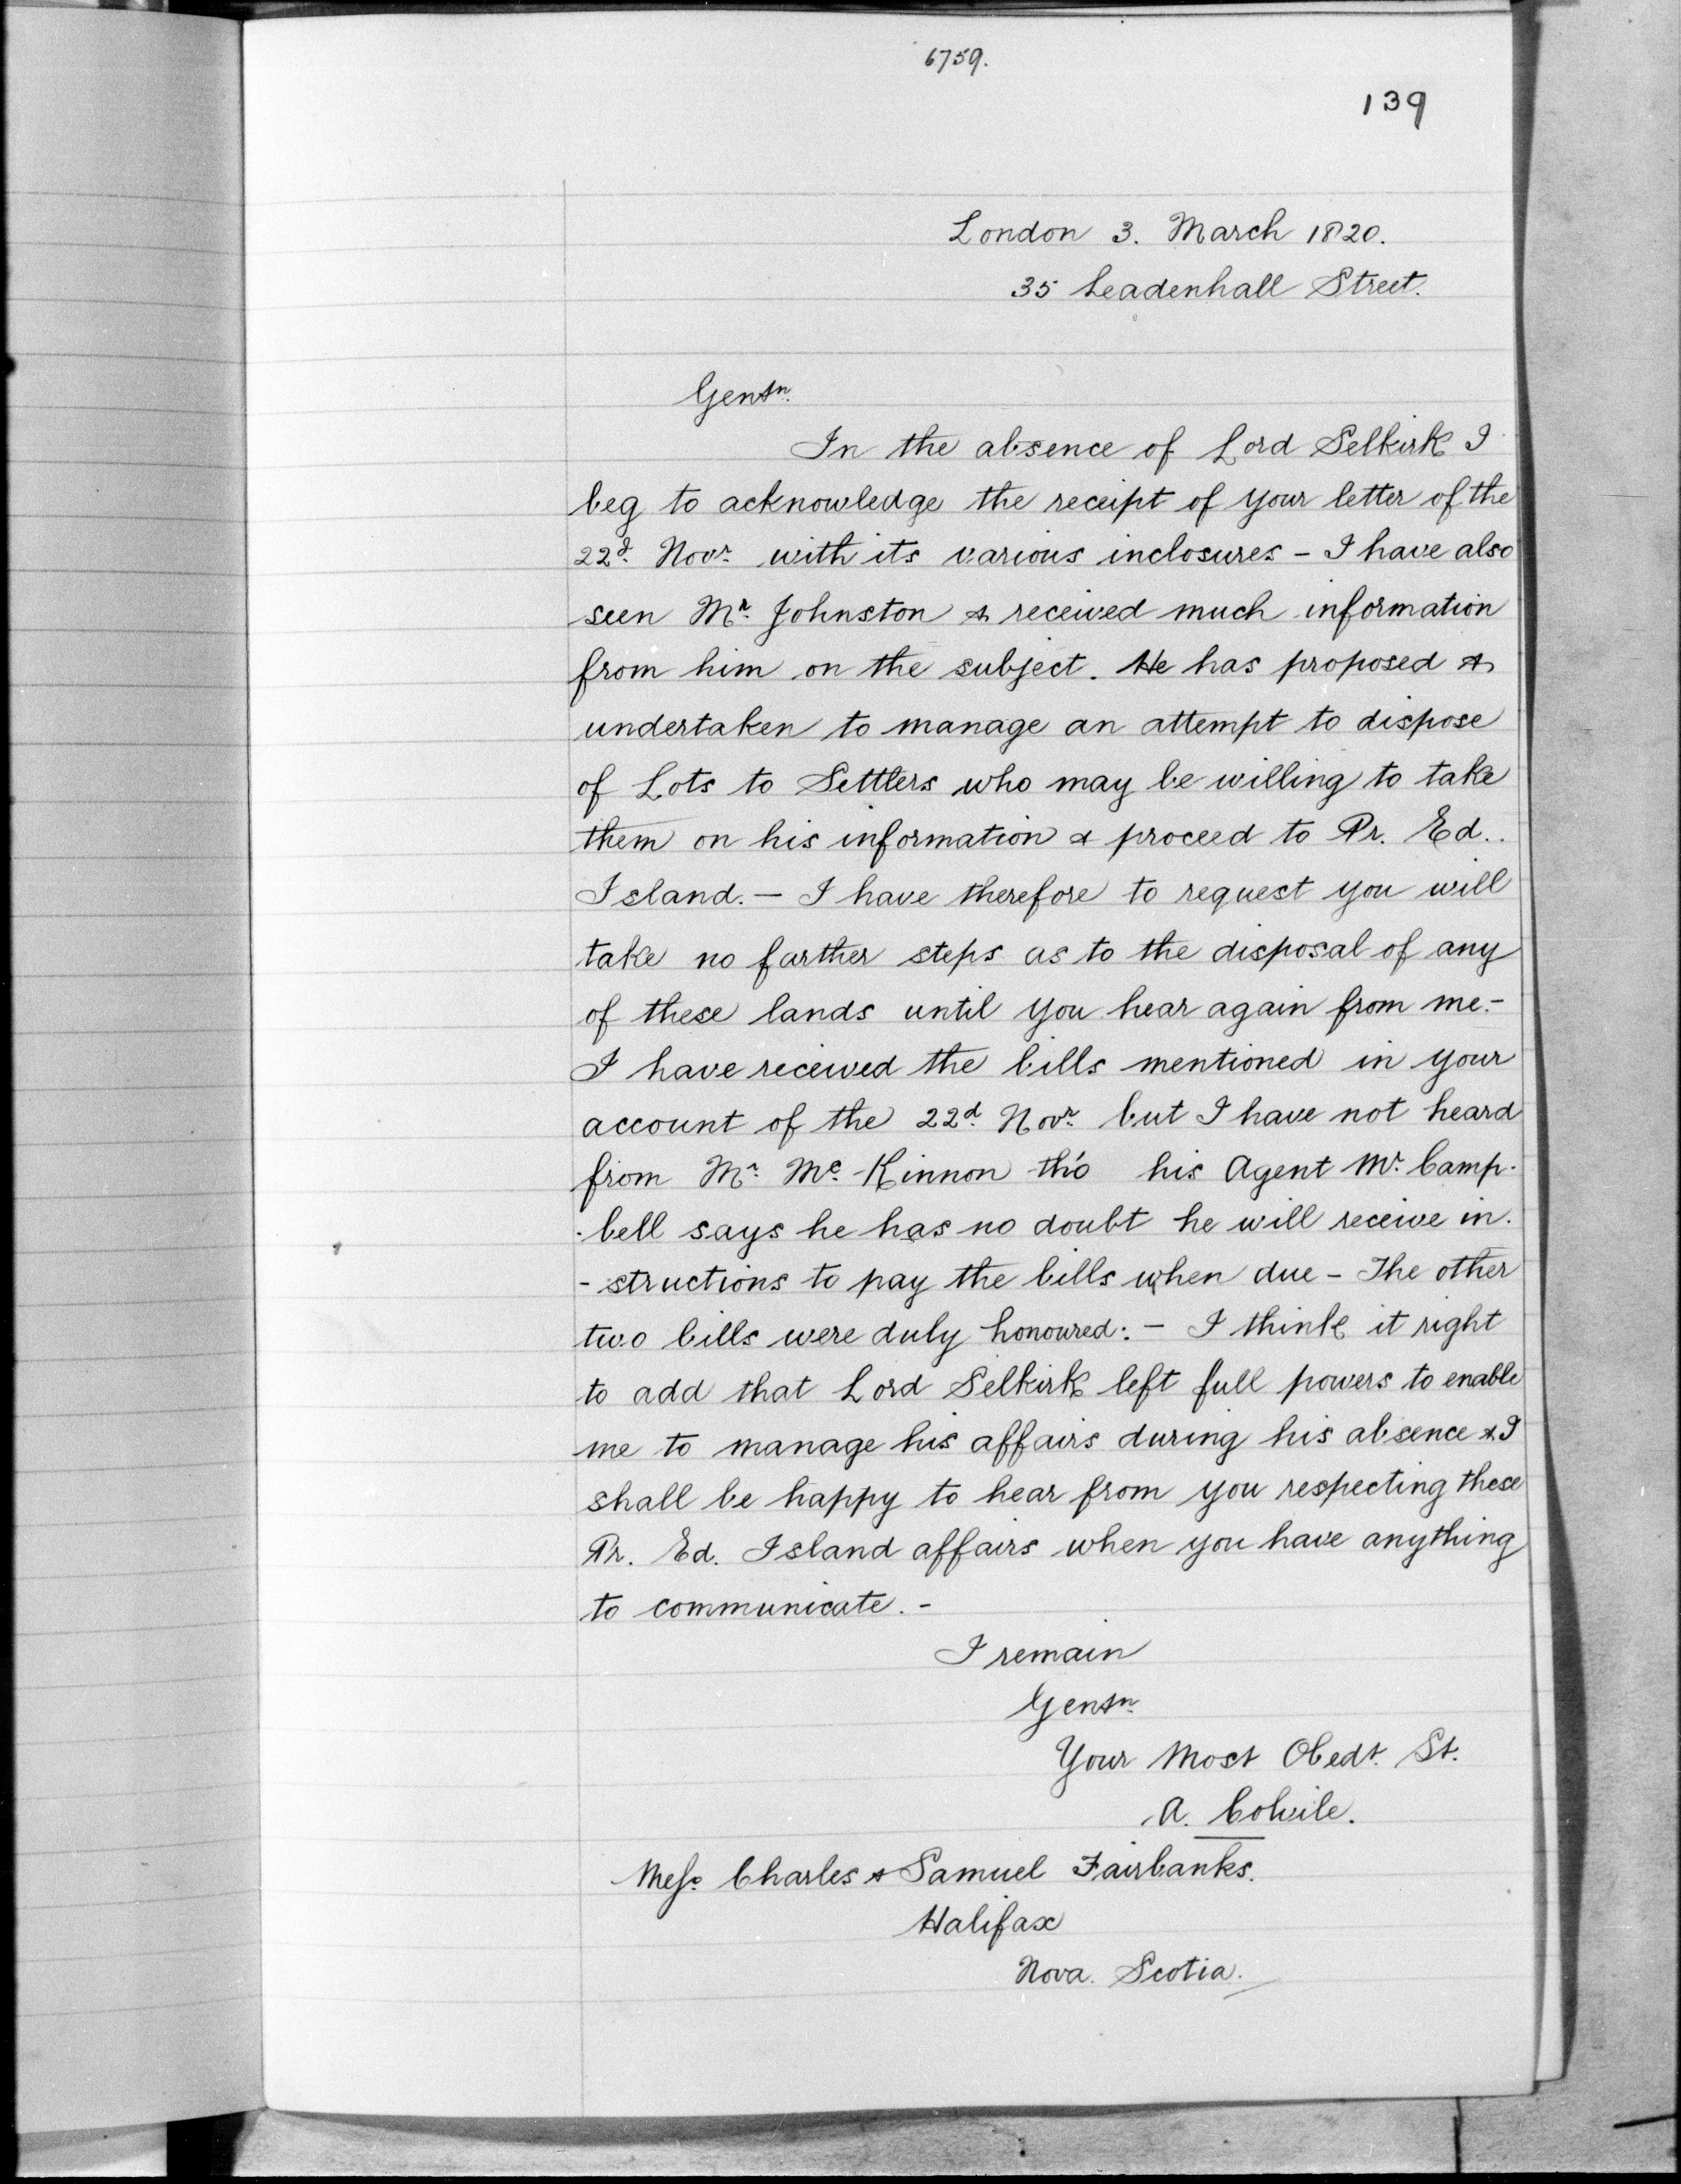 6759.
139
London 3. March 1820.
35 Leadenhall Street.
Gentn.
In the absence of Lord Selkirk I
beg to acknowledge the receipt of your letter of the
22d. Novr. with its various inclosures - I have also
seen Mr. Johnston & received much information
from him on the subject. He has proposed &
undertaken to manage an attempt to dispose
of Lots to Settlers who may be willing to take
them on his information & proceed to Pr. Ed..
Island. - I have therefore to request you will
take no farther steps as to the disposal of any
of these lands until you hear again from me. -
I have received the bills mentioned in your
account of the 22d. Novr. but I have not heard
from Mr. Mc. Kinnon tho' his Agent Mr. Camp-
-bell says he has no doubt he will receive in-
-structions to pay the bills when due - The other
two bills were duly honoured: - I think it right
to add that Lord Selkirk left full powers to enable
me to manage his affairs during his absence & I
shall be happy to hear from you respecting these
Pr. Ed. Island affairs when you have anything
to communicate. -
I remain
Gentn.
Your Most Obedt. St.
A. Colvile.
Mess. Charles & Samuel Fairbanks.
Halifax
Nova. Scotia.